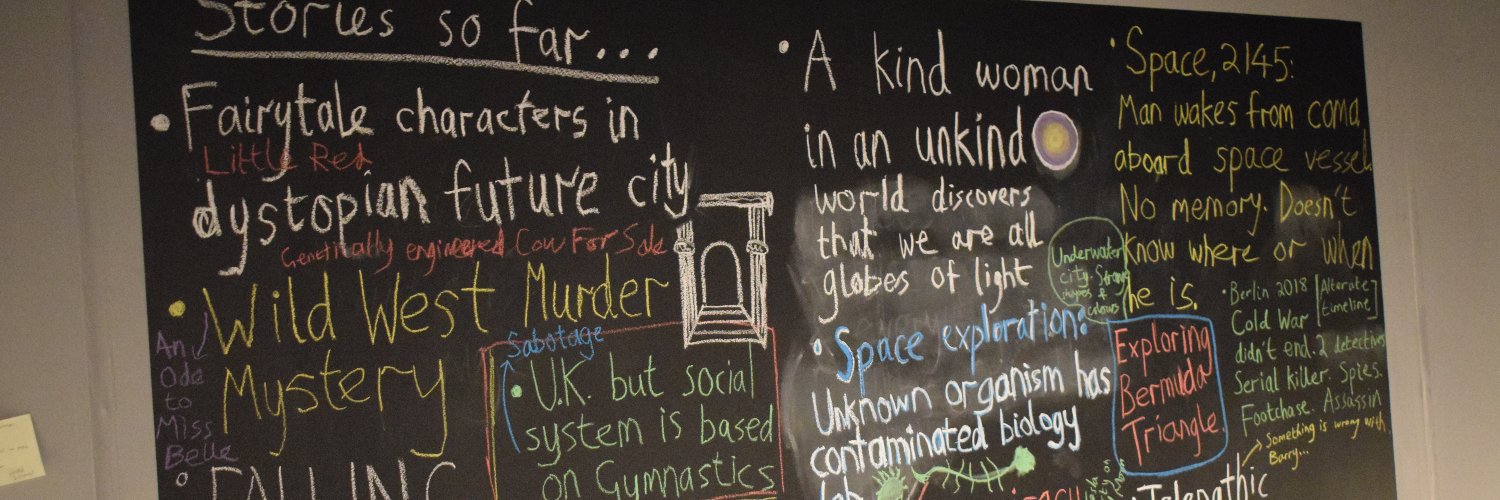 Stories so far...
• Fairytale characters in
Little Red
dystopian future city
Genetically engineered Cow For Sale
• Wild West Murder
Mystery
An
Ode
to
Miss
Belle
Sabotage
• U.K. but social
system is based
on Gymnastics
FALLING
• A kind woman
in an unkind
world discovers
that we are all
globes of light
Underwater
city. Strange
shapes &
colours
• Space exploration:
Unknown organism has
contaminated biology
lab
• Space, 2145:
Man wakes from coma
aboard space vessel
No memory. Doesn't
know where or when
he is.
Exploring
Bermuda
Triangle.
• Berlin 2018 [Alternate
timeline]
Cold War
didn't end. 2 detectives
Serial killer. Spies.
Footchase. Assassin
Something is wrong with
Barry...
• Telepathic